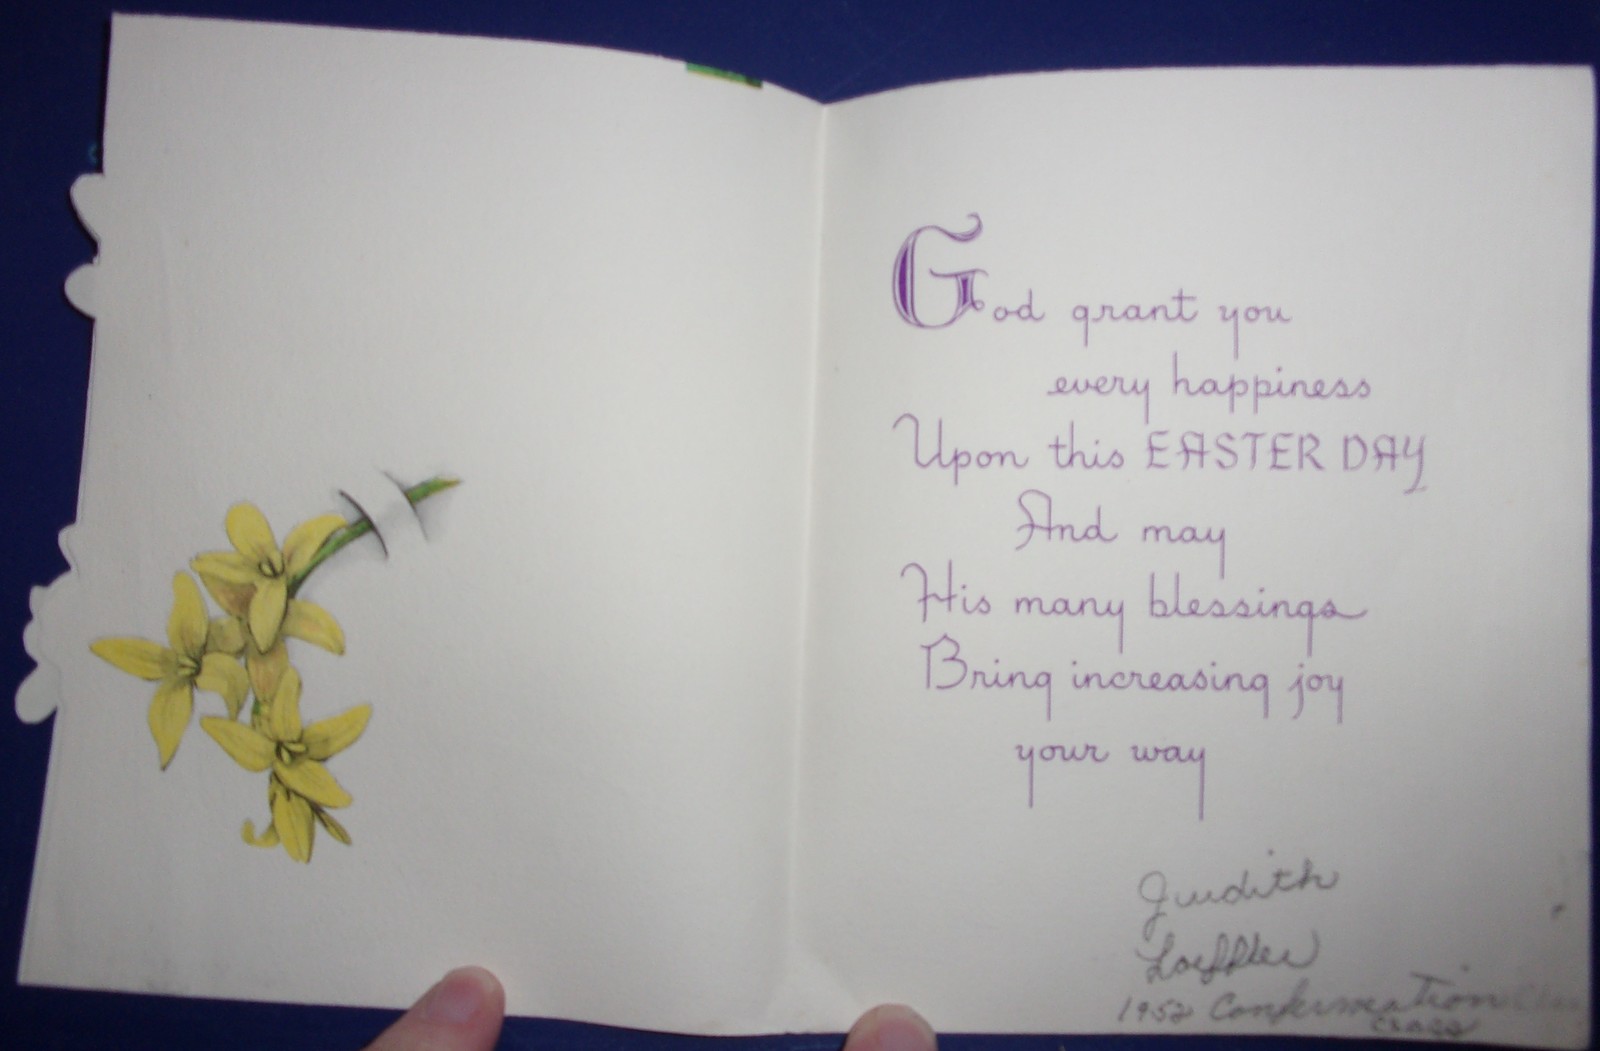 God grant you
every happiness
Upon this EASTER DAY
And may
His many blessings
Bring increasing joy
your way
Judith
Loeffler
1952 Confirmation Class
Class